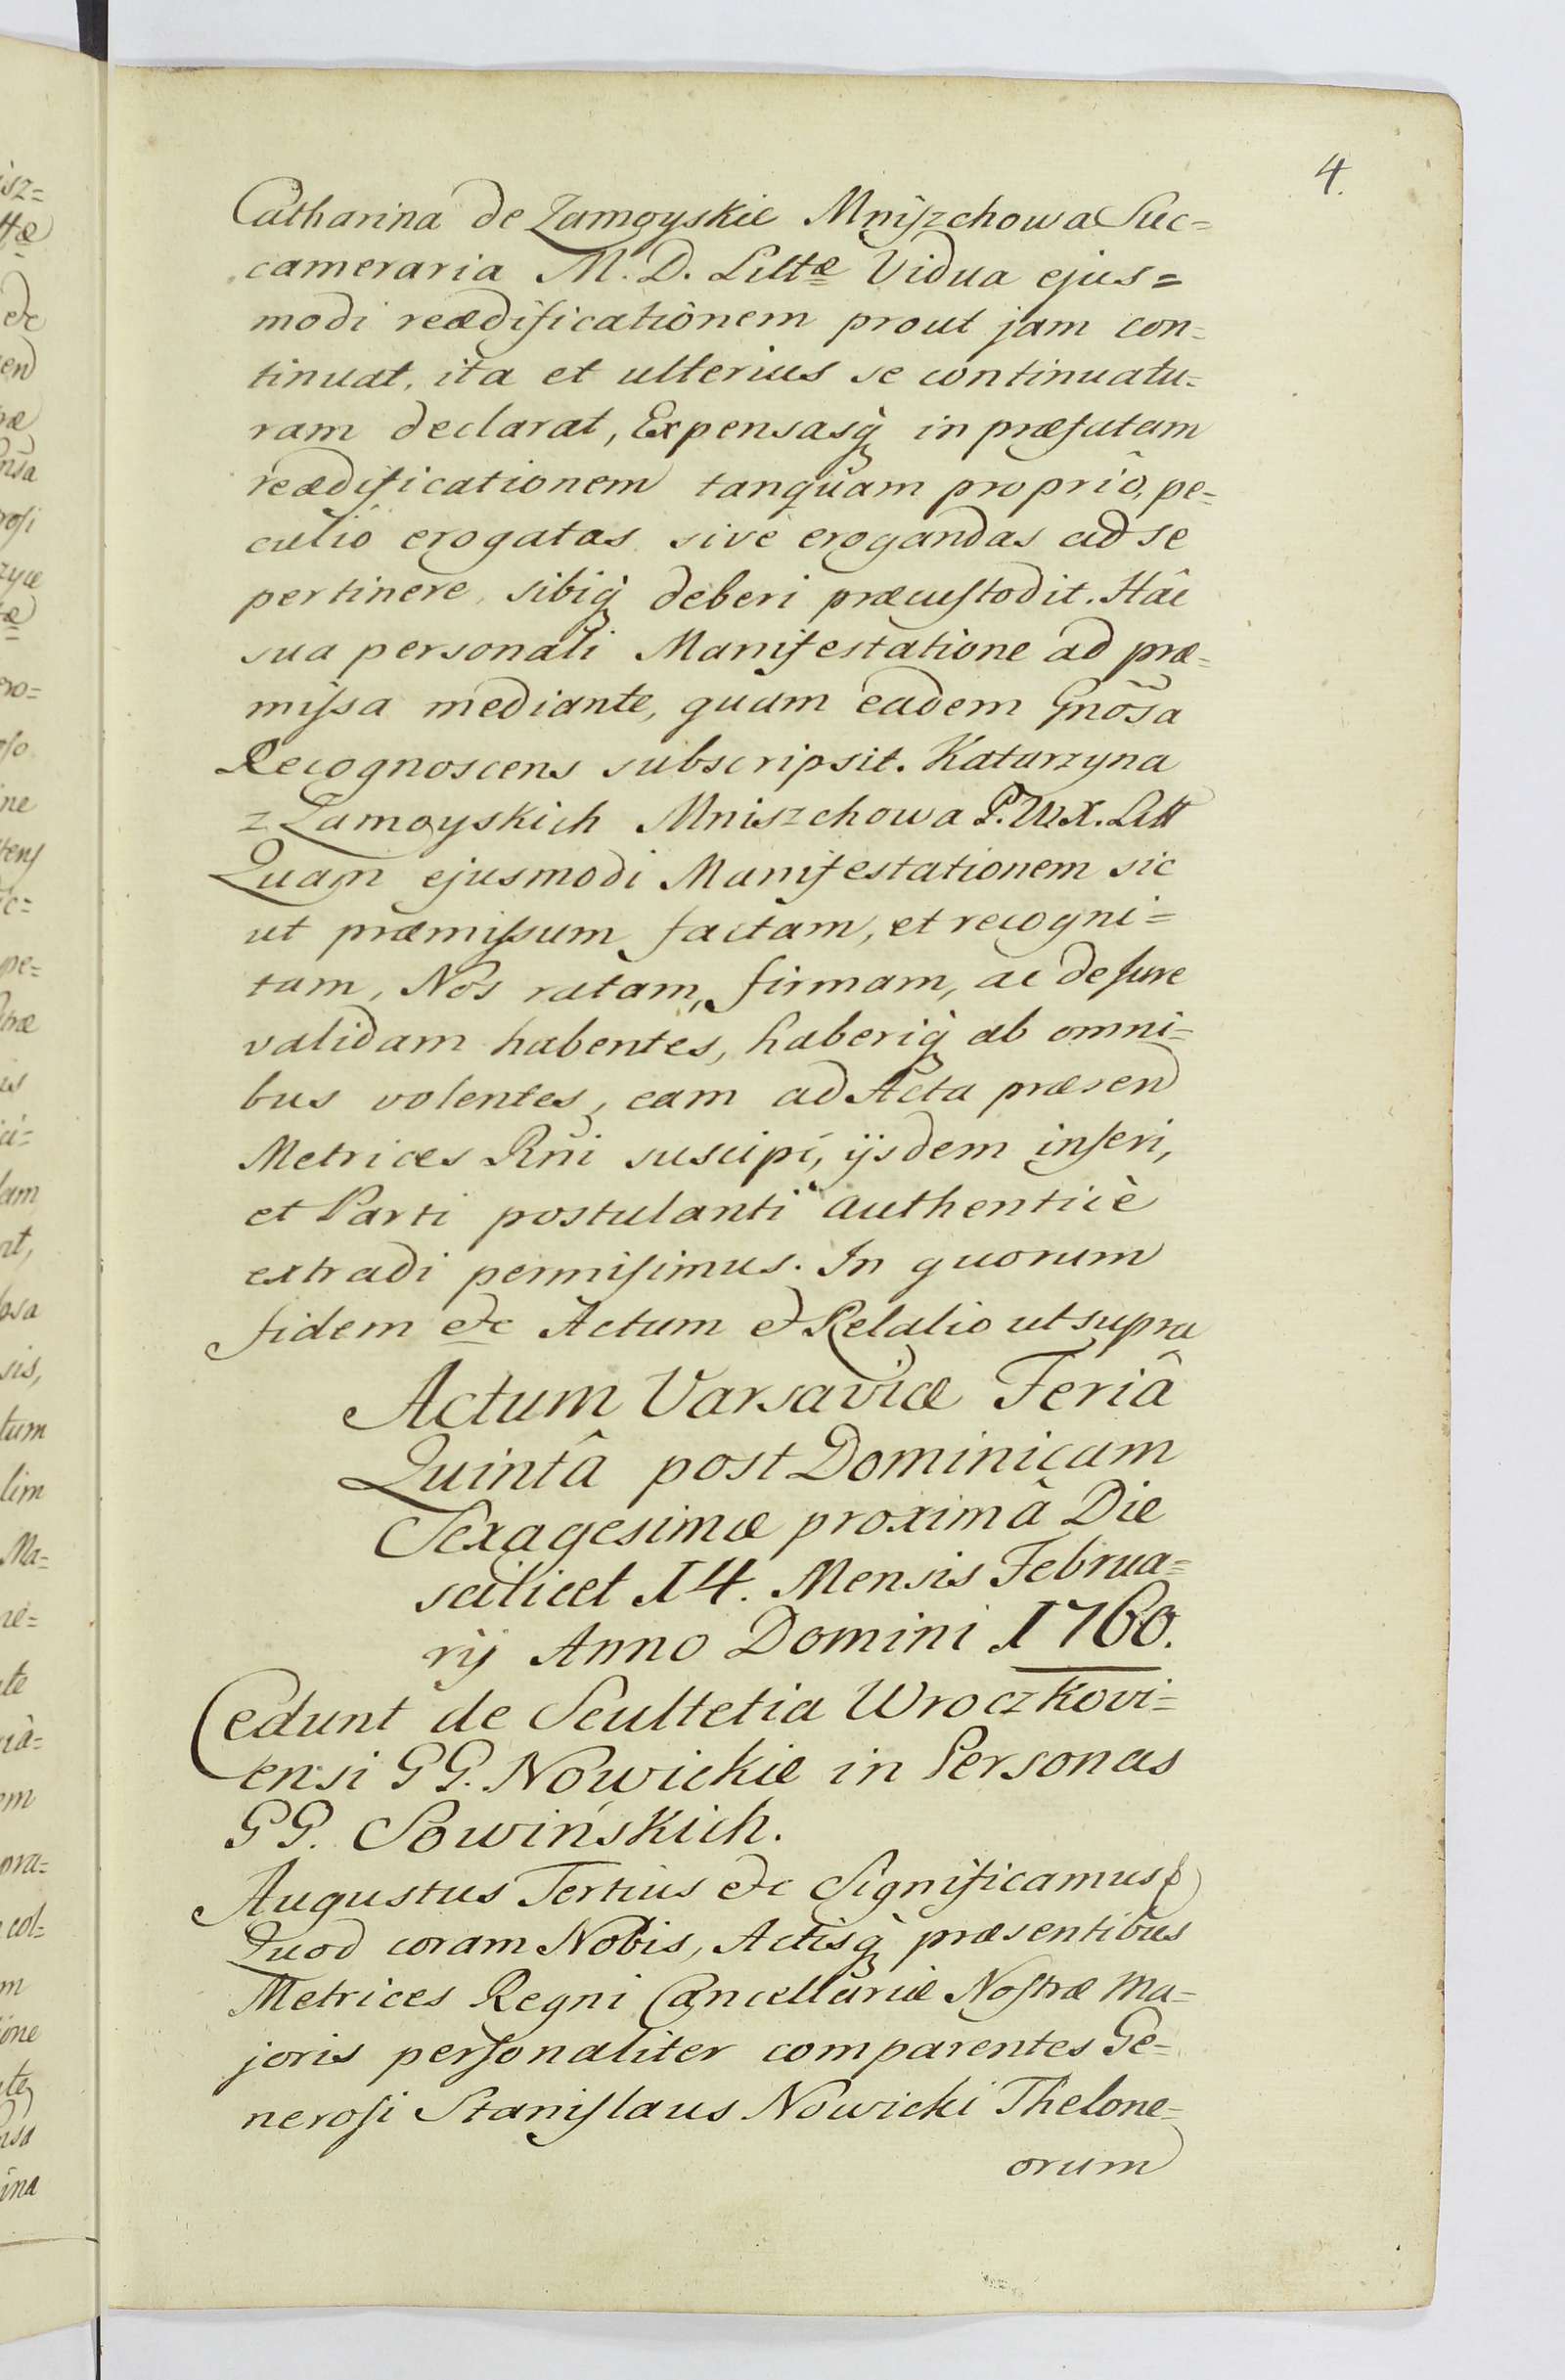 4.
Catharina de Zamoyskie Mniszchowa Suc=
cameraria M. D. Littæ Vidua ejus=
modi reædificationem prout jam con=
tinuat, ita et ulterius se continuatu=
ram declarat, Expensasq̀ in præfatam
reædificationem tanquam propriô, pe=
culiô erogatas sive erogandas ad se
pertinere, sibiq̀ deberi præcustodit. Hâc
sua personali Manifestatione ad præ=
missa mediante, quam eadem Gnõsa
Recognoscens subscripsit. Katarzyna
z Zamoyskich Mniszchowa P. W. X. Litt
Quam ejusmodi Manifestationem sic
ut præmissum factam, et recogni=
tam, Nos ratam, firmam, ac de Jure
validam habentes, haberiq̀ ab omni=
bus volentes, eam ad Acta præsen
Metrices Rñi suscipi, ijsdem inseri,
et Parti postulanti authenticè
extradi permisimus. In quorum
fidem etc Actum et Relatio ut supra
Actum Varsaviæ Feriâ
Quintâ post Dominicam
Sexagesimæ proximâ Die
scilicet 14. Mensis Februa=
rij Anno Domini 1760.
Cedunt de Scultetia Wroczkovi=
ensi GG. Nowickie in Personas
GG. Sowińskich.
Augustus Tertius etc Significamus
Quod coram Nobis, Actisq̀ præsentibus
Metrices Regni Cancellariæ Nostræ Ma=
joris personaliter comparentes Ge=
nerosi Stanislaus Nowicki Thelone=
orum